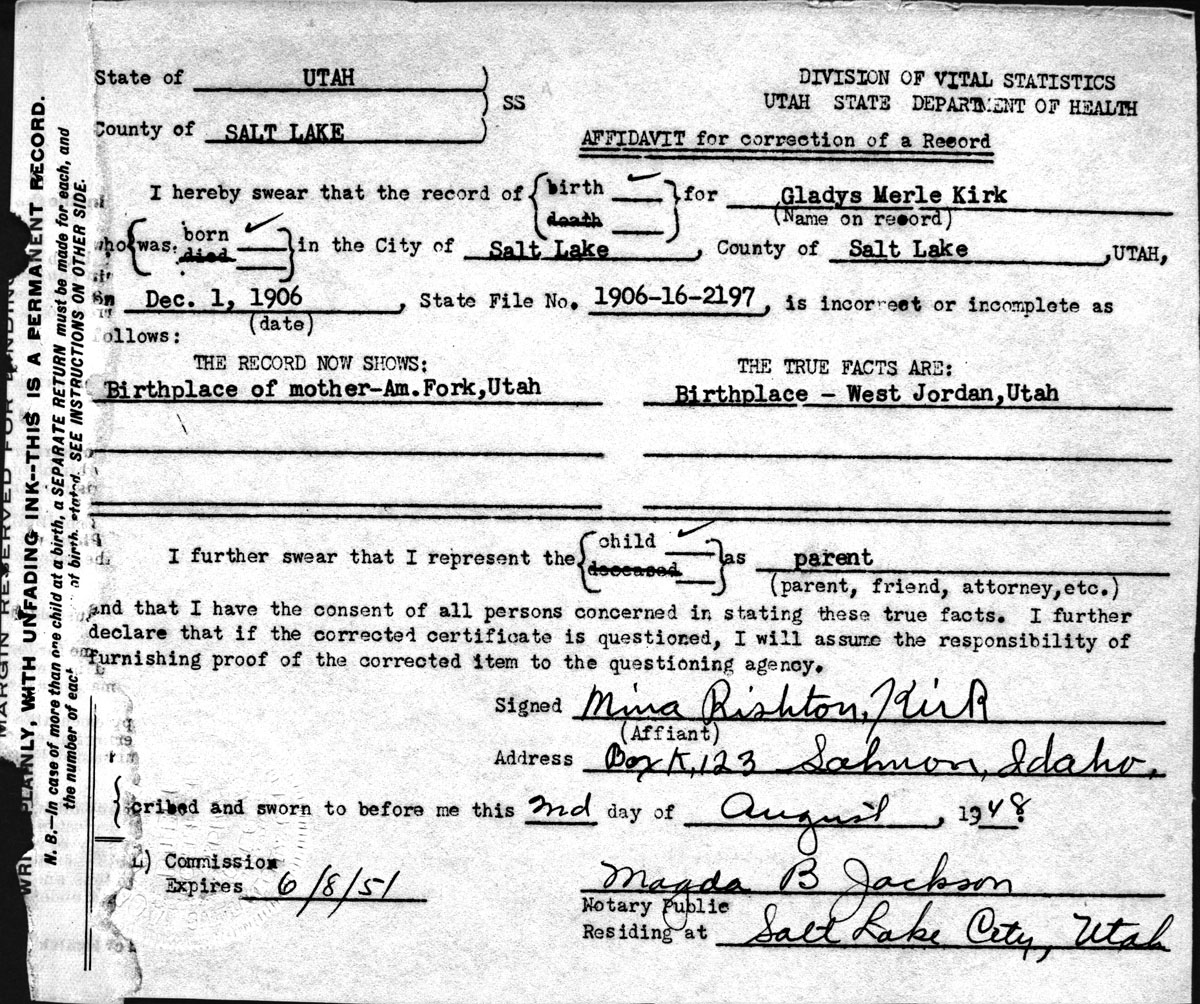 State of UTAH
County of SALT LAKE
SS
DIVISION OF VITAL STATISTICS
UTAH STATE DEPARTMENT OF HEALTH
AFFIDAVIT for correction of a Record
I hereby swear that the record of { birth ✓ } for Gladys Merle Kirk
death
(Name on record)
who was born ✓ in the City of Salt Lake, County of Salt Lake, UTAH,
died
on Dec. 1, 1906, State File No. 1906-16-2197, is incorrect or incomplete as
(date)
follows:
THE RECORD NOW SHOWS: THE TRUE FACTS ARE:
Birthplace of mother-Am.Fork,Utah Birthplace - West Jordan,Utah
I further swear that I represent the { child ✓ } as parent
deceased
(parent, friend, attorney,etc.)
and that I have the consent of all persons concerned in stating these true facts. I further
declare that if the corrected certificate is questioned, I will assume the responsibility of
furnishing proof of the corrected item to the questioning agency.
Signed Mina Rishton, Kirk
(Affiant)
Address Box K, 123 Salmon, Idaho.
cribed and sworn to before me this 2nd day of August, 1948
L) Commission
Expires 6/8/51
Magda B Jackson
Notary Public
Residing at Salt Lake City, Utah
MARGIN RESERVED FOR BINDING
WRITE PLAINLY, WITH UNFADING INK--THIS IS A PERMANENT RECORD.
N. B.—In case of more than one child at a birth, a SEPARATE RETURN must be made for each, and
the number of each of birth, stated. SEE INSTRUCTIONS ON OTHER SIDE.